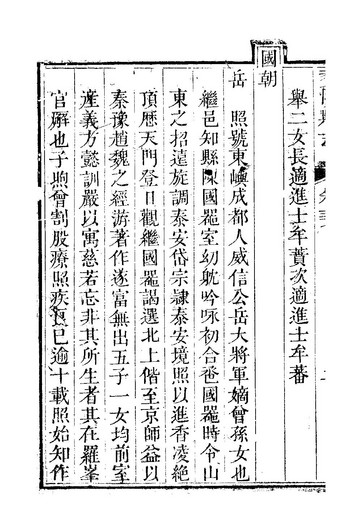 舉二女長適進士牟蕡次適進士牟蕃
國朝
岳 照號東嵫成都人威信公岳大將軍嫡曾孫女也
繼邑知縣陳國器室幼躭吟咏初合巹國器時令山
東之招遠旋調泰安岱宗隷泰安境照以進香凌絶
頂歷天門登日觀繼國器謁選北上偕至京師益以
秦豫趙魏之經游著作遂富無出五子一女均前室
產義方懿訓嚴以寓慈若忘非其所生者其在羅峯
官廨也子煦曾割股療照疾長已逾十載照始知作